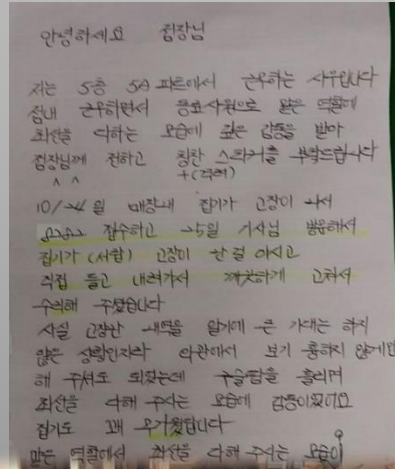 안녕하세요 점장님
저는 5층 SA 파트에서 근무하는 사원입니다
점내 근무하면서 동료사원으로 맡은 역할에
최선을 다하는 모습에 깊은 감동을 받아
점장님께 전하고 칭찬 스티커를 부탁드립니다
^ ^ +(격려)
10/24일 매장내 집기가 고장이 나서
8282 접수하고 25일 기사님 방문해서
집기가 (서랍) 고장이 난 걸 아시고
직접 들고 내려가서 깨끗하게 고쳐서
수리해 주셨습니다
사실 고장난 내역을 알기에 큰 기대는 하지
않은 상황인지라 외관에서 보기 흉하지 않게만
해 주셔도 되었는데 구슬땀을 흘리며
최선을 다해 주시는 모습에 감동이었어요
집기도 꽤 무거웠답니다
맡은 역할에서 최선을 다해 주시는 모습이